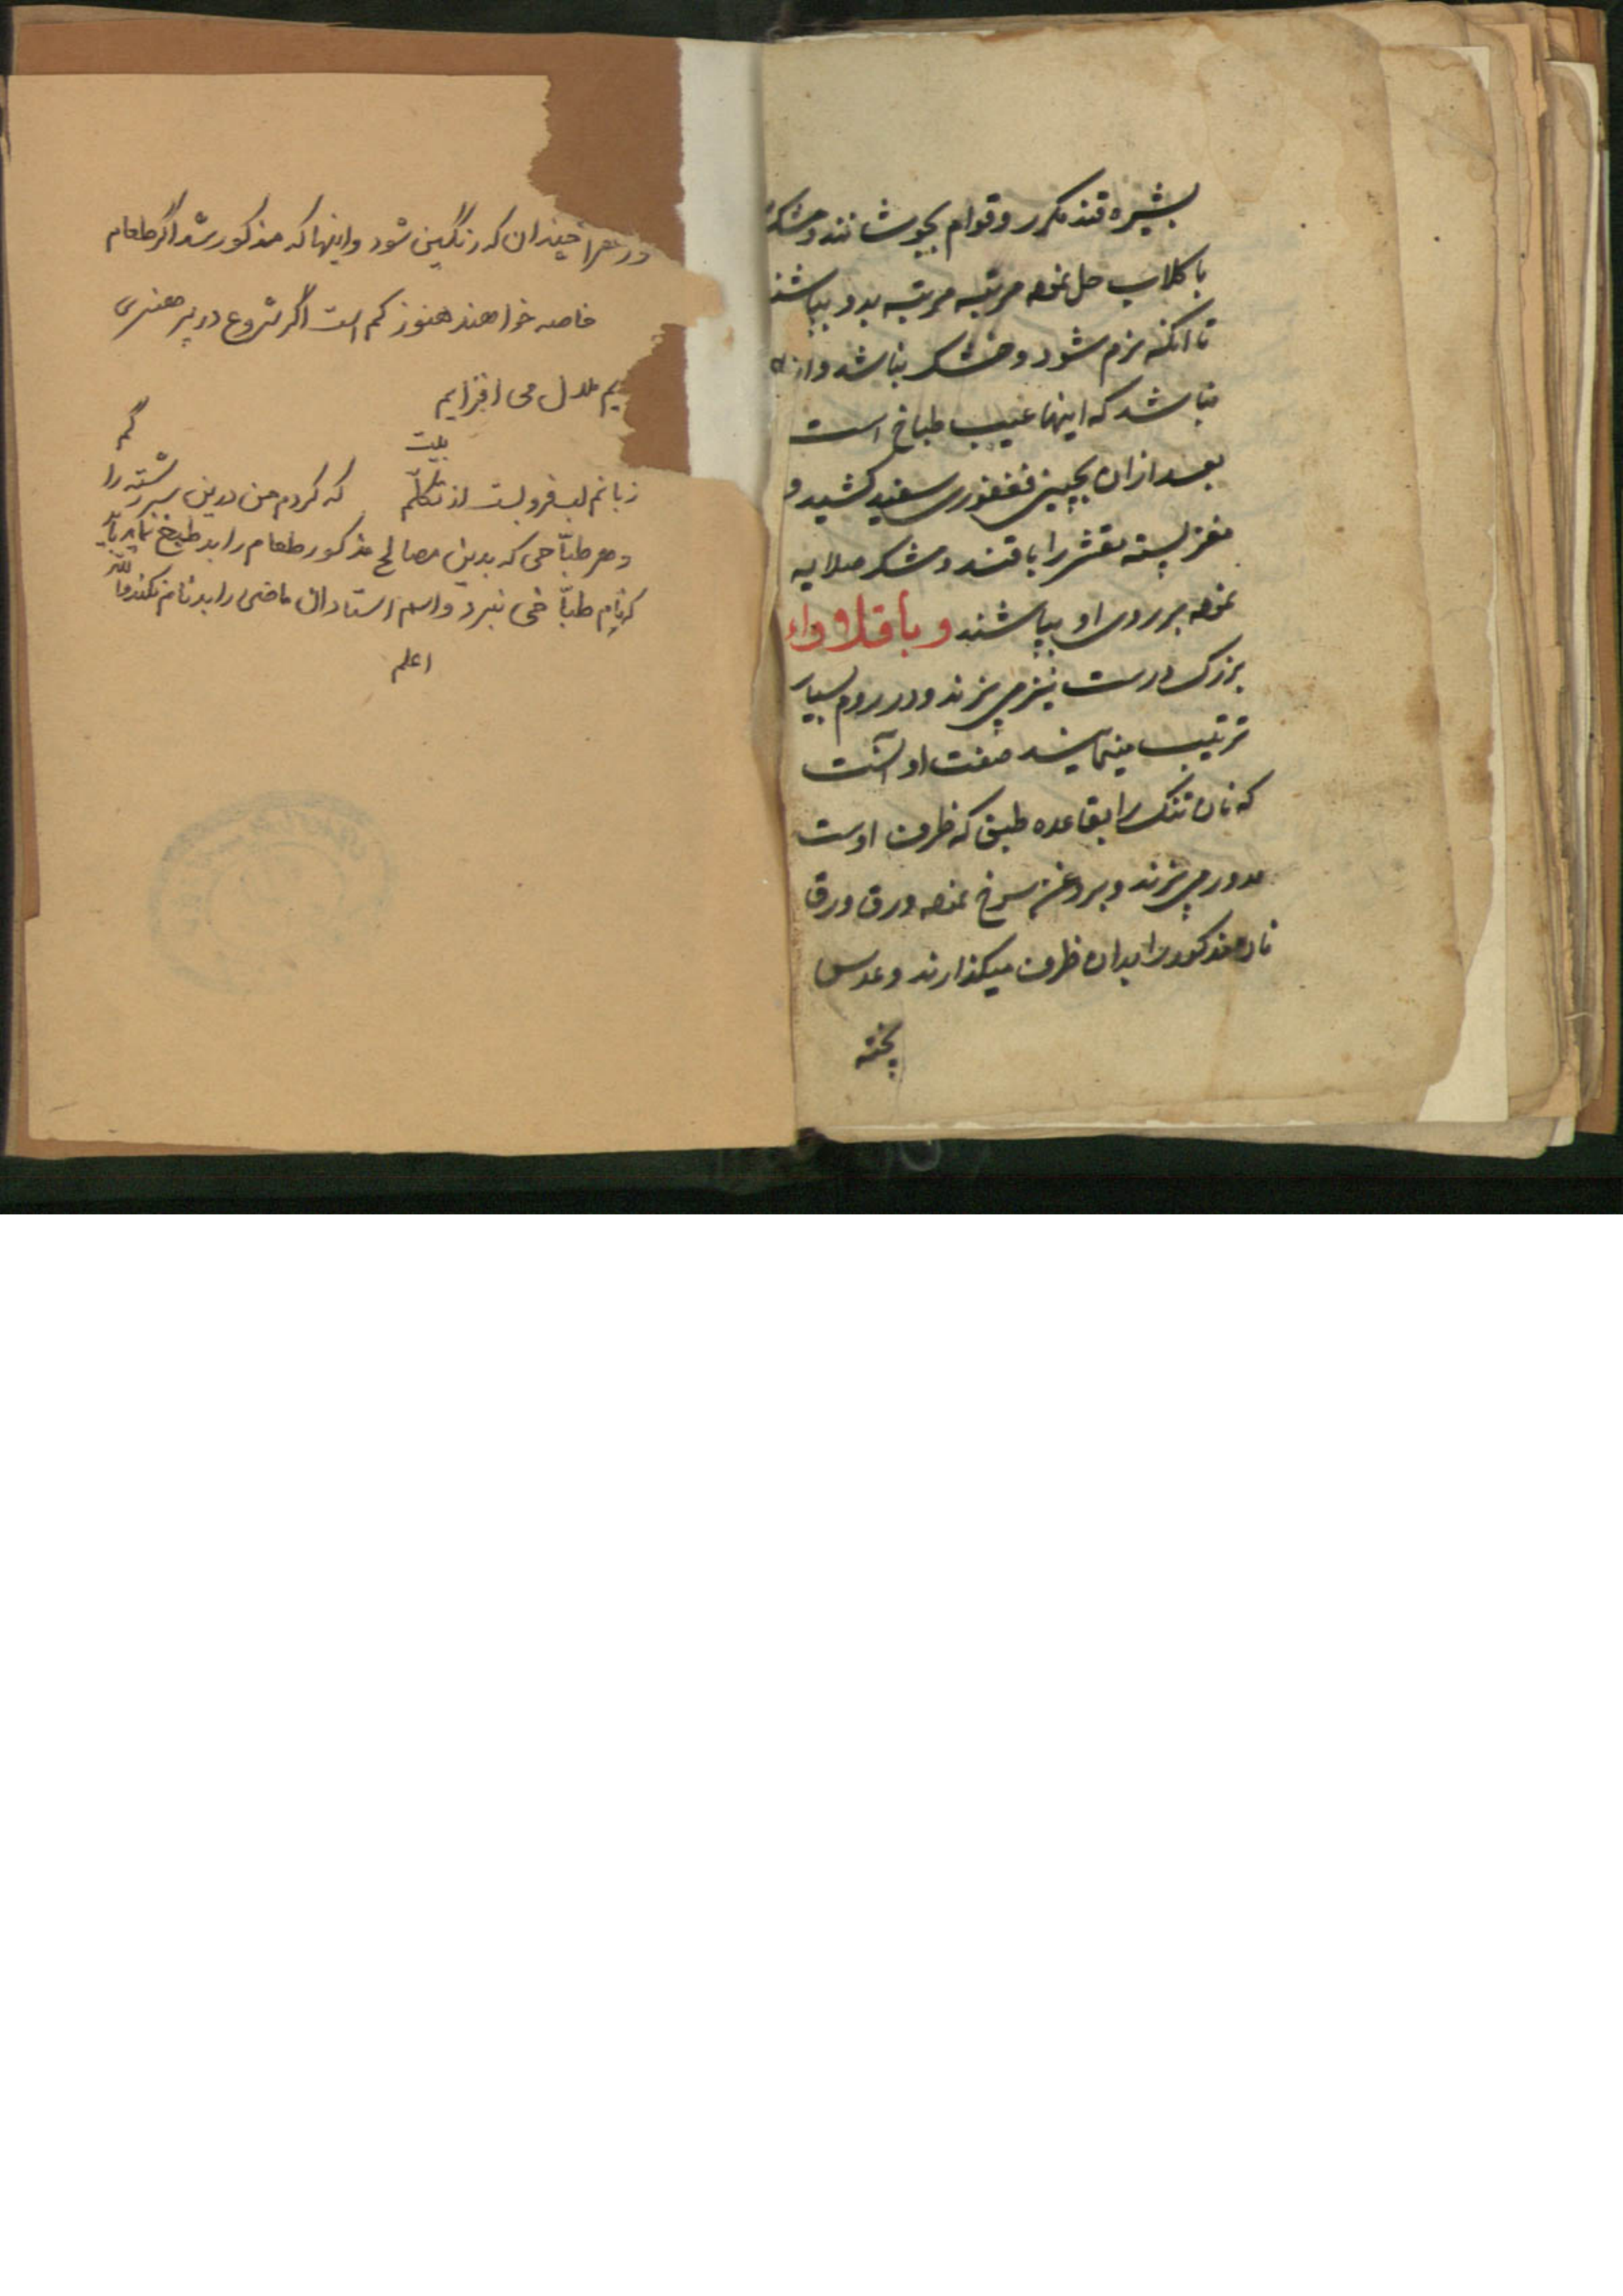 بشیره قند مکرر و قوام بجوشانند و مشک
با کلاب حل نموده مرتبه مرتبه بدو بپاشند
تا آنکه نرم شود و خشک نباشد و از
نباشد که اینها عیب طباخ است
بعد ازان بچینی فغفوری سفید کشید و
مغز پسته مقشر را با قند و مشک صلایه
نموده بر روی او بپاشند و باقلاواء
بزرک درست نیز می پزند و در روم بسیار
ترتیب مینمایند صفت او آنست
که نان تنک را بقاعده طبق که ظرف اوست
مدور می پزند و بروغن سرخ نموده ورق ورق
نان مذکور را بدان ظرف میکذارند و عدس
پخته
در هرا چندان که رنگین شود و اینها که مذکور شد اگر طعام
خاصه خواهند هنوز کم است اگر شروع در پر هنری
یم ملال می افزایم
بیت
زبانم لب فرو بست از تکلّم که کردم من درین سر رشته را گم
و هر طبّاخی که بدین مصالح مذکور طعام را بد طبخ نماید باید
که نام طبّاخی نبرد و اسم استادان ماضی را بدنام نکند واللّه
اعلم